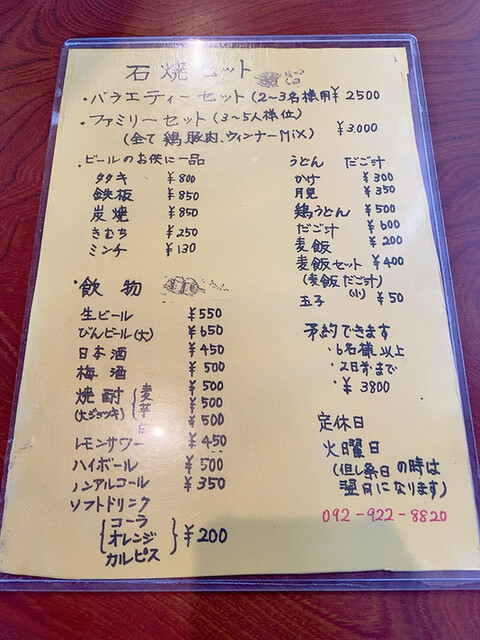 石焼セット
・バラエティーセット(2〜3名様用 ¥2500
・ファミリーセット(3〜5人様位)
(全て 鶏、豚肉、ウィンナーMiX) ¥3,000
・ビールのお供に一品
タタキ ¥800
鉄板 ¥850
炭焼 ¥850
きむち ¥250
ミンチ ¥130
・飲物
生ビール ¥550
びんビール(大) ¥650
日本酒 ¥450
梅酒 ¥500
焼酎 麦 ¥500
(大ジョッキ) 芋 ¥500
¥500
レモンサワー ¥450
ハイボール ¥500
ノンアルコール ¥350
ソフトドリンク
コーラ
オレンジ ¥200
カルピス
うどん だご汁
かけ ¥300
月見 ¥350
鶏うどん ¥500
だご汁 ¥600
麦飯 ¥200
麦飯セット ¥400
(麦飯だご汁)
(小)
玉子 ¥50
予約できます
・6名様以上
・2日前まで
・¥3800
定休日
火曜日
(但し祭日の時は
翌日になります)
092-922-8820